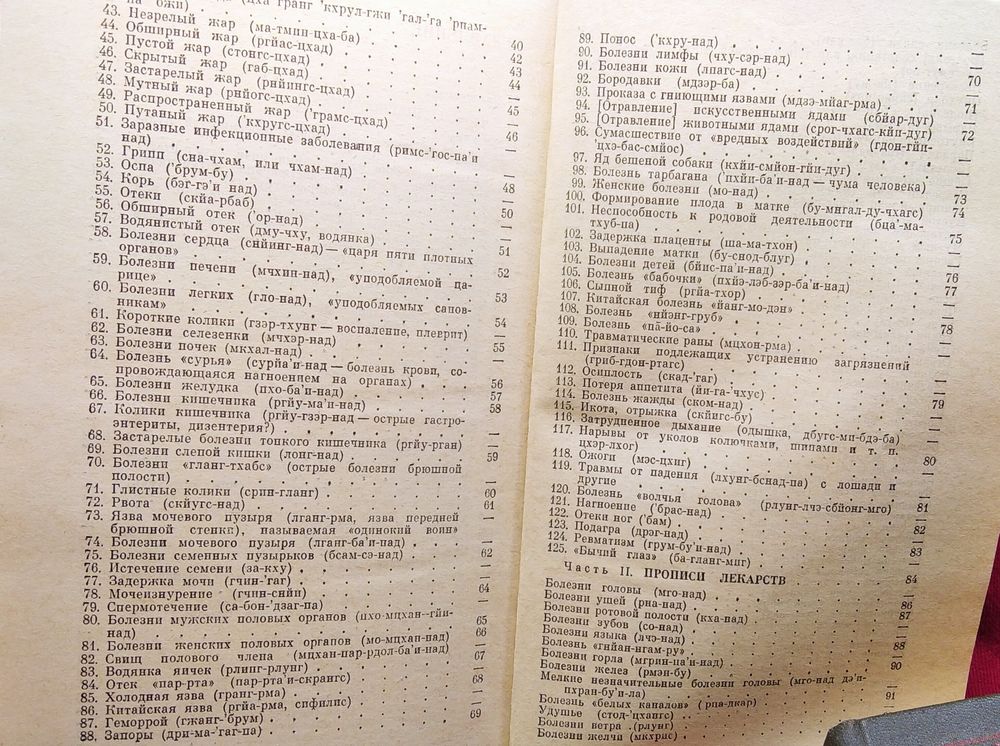 на ожи) (цха гранг 'кхрул-гжи 'гал-'га 'рпам-
43. Незрелый жар (ма-тмин-цха-ба) 40
44. Обширный жар (ргйас-цхад) 42
45. Пустой жар (стонгс-цхад) 43
46. Скрытый жар (габ-цхад) 44
47. Застарелый жар (рнйингс-цхад) —
48. Мутный жар (рнйогс-цхад) —
49. Распространенный жар ('грамс-цхад)
50. Путаный жар ('кхругс-цхад) 46
51. Заразные инфекционные заболевания (римс-'гос-па'и
над) —
52. Грипп (сна-чхам, или чхам-над)
53. Оспа ('брум-бу) 48
54. Корь (бэг-гэ'и над) —
55. Отеки (скйа-рбаб) 50
56. Обширный отек ('ор-над) —
57. Водянистый отек (дму-чху, водянка) 51
58. Болезни сердца (снйинг-над) — «царя пяти плотных
органов» 52
59. Болезни печени (мчхин-над), «уподобляемой ца-
рице» 53
60. Болезни легких (гло-над), «уподобляемых санов-
никам» 54
61. Короткие колики (гзэр-тхунг — воспаление, плеврит)
62. Болезни селезенки (мчхэр-над) 55
63. Болезни почек (мкхал-над) —
64. Болезнь «сурья» (сурйа'и-над — болезнь крови, со-
провождающаяся нагноением на органах) 56
65. Болезни желудка (пхо-ба'и-над) 57
66. Болезни кишечника (ргйу-ма'и-над) 58
67. Колики кишечника (ргйу-гзэр-над — острые гастро-
энтериты, дизентерия?) —
68. Застарелые болезни тонкого кишечника (ргйу-рган)
69. Болезни слепой кишки (лонг-над) 59
70. Болезни «гланг-тхабс» (острые болезни брюшной
полости) —
71. Глистные колики (срин-гланг) 60
72. Рвота (скйугс-над) 61
73. Язва мочевого пузыря (лганг-рма, язва передней
брюшной стенки), называемая «одинокий воин» —
74. Болезни мочевого пузыря (лганг-ба'и-над)
75. Болезни семенных пузырьков (бсам-сэ-над) 62
76. Истечение семени (за-кху) —
77. Задержка мочи (гчин-'гаг) —
78. Мочеизнурение (гчин-снйи) 64
79. Спермотечение (са-бон-'дзаг-па) —
80. Болезни мужских половых органов (пхо-мцхан-гйи-
над) 65
81. Болезни женских половых органов (мо-мцхан-над) 66
82. Свищ полового члена (мцхан-пар-рдол-ба'и-над) —
83. Водянка яичек (рлинг-рлунг) 67
84. Отек «пар-рта» (пар-рта'и-скрангс) 68
85. Холодная язва (гранг-рма) —
86. Китайская язва (ргйа-рма, сифилис) —
87. Геморрой (гжанг-'брум) 69
88. Запоры (дри-ма-'гаг-па)
89. Понос ('кхру-над)
90. Болезни лимфы (чху-сэр-над) —
91. Болезни кожи (лпагс-над) —
92. Бородавки (мдзэр-ба) 70
93. Проказа с гниющими язвами (мдзэ-мйаг-рма) —
94. [Отравление] искусственными ядами (сбйар-дуг) 71
95. [Отравление] животными ядами (срог-чхагс-кйи-дуг) —
96. Сумасшествие от «вредных воздействий» (гдон-гйи- 72
'цхэ-бас-смйос) —
97. Яд бешеной собаки (кхйи-смйон-гйи-дуг)
98. Болезнь тарбагана ('пхйи-ба'и-над — чума человека) —
99. Женские болезни (мо-над) 73
100. Формирование плода в матке (бу-мнгал-ду-чхагс) 74
101. Неспособность к родовой деятельности (бца'-ма-
тхуб-па) 75
102. Задержка плаценты (ша-ма-тхон) —
103. Выпадение матки (бу-снод-блуг) —
104. Болезни детей (бйис-па'и-над) 76
105. Болезнь «бабочки» (пхйэ-лэб-вэр-ба'и-над) 77
106. Сыпной тиф (ргйа-тхор) —
107. Китайская болезнь «йанг-мо-дэн» —
108. Болезнь «нйэнг-груб» 78
109. Болезнь «пā-йо-са» —
110. Травматические раны (мцхон-рма) —
111. Признаки подлежащих устранению загрязнений
(гриб-гдон-ртагс) —
112. Осиплость (скад-'гаг) —
113. Потеря аппетита (йи-га-'чхус) —
114. Болезнь жажды (ском-над) 79
115. Икота, отрыжка (скйигс-бу) —
116. Затрудненное дыхание (одышка, дбугс-ми-бдэ-ба)
117. Нарывы от уколов колючками, шипами и т. п.
цхэр-лхог) 80
118. Ожоги (мэс-цхиг) —
119. Травмы от падения (лхунг-бснад-па) с лошади и
другие —
120. Болезнь «волчья голова» (рлунг-лчэ-сбйонг-мго) 81
121. Нагноение ('брас-над) —
122. Отеки ног ('бам) 82
123. Подагра (дрэг-над) —
124. Ревматизм (грум-бу'и-над) 83
125. «Бычий глаз» (ба-гланг-миг) —
Часть II. ПРОПИСИ ЛЕКАРСТВ 84
Болезни головы (мго-над) —
Болезни ушей (рна-над) 86
Болезни ротовой полости (кха-над) 87
Болезни зубов (со-над) —
Болезни языка (лчэ-над) 88
Болезнь «гнйан-нгам-ру» —
Болезни горла (мгрин-па'и-над) 90
Болезни желез (рмэн-бу) —
Мелкие незначительные болезни головы (мго-над дэ'и-
пхран-бу'и-ла) 91
Болезнь «белых каналов» (рца-дкар) —
Удушье (стод-'цхангс)
Болезни ветра (рлунг)
Болезни желчи (мкхрис)